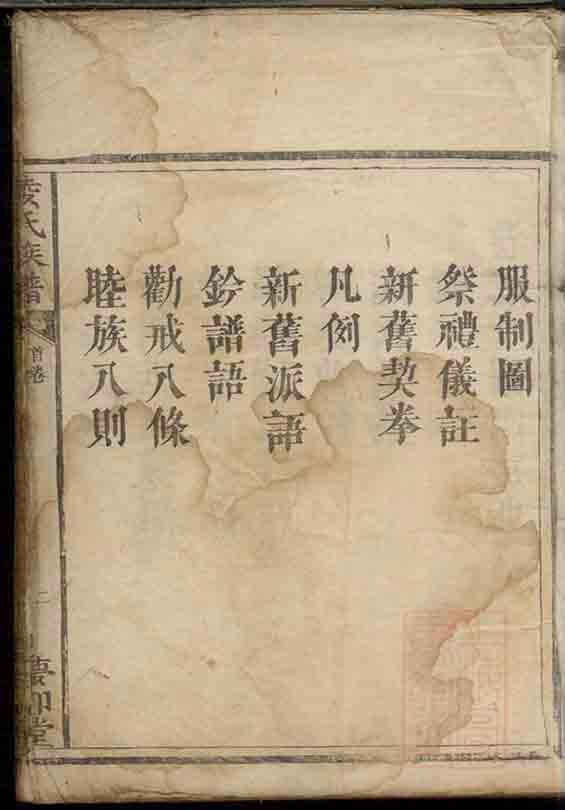 服制圖
祭禮儀註
新舊契拳
凡例
新舊派語
鈐譜語
勸戒八條
睦族八則
氏族譜
首卷
二
堂